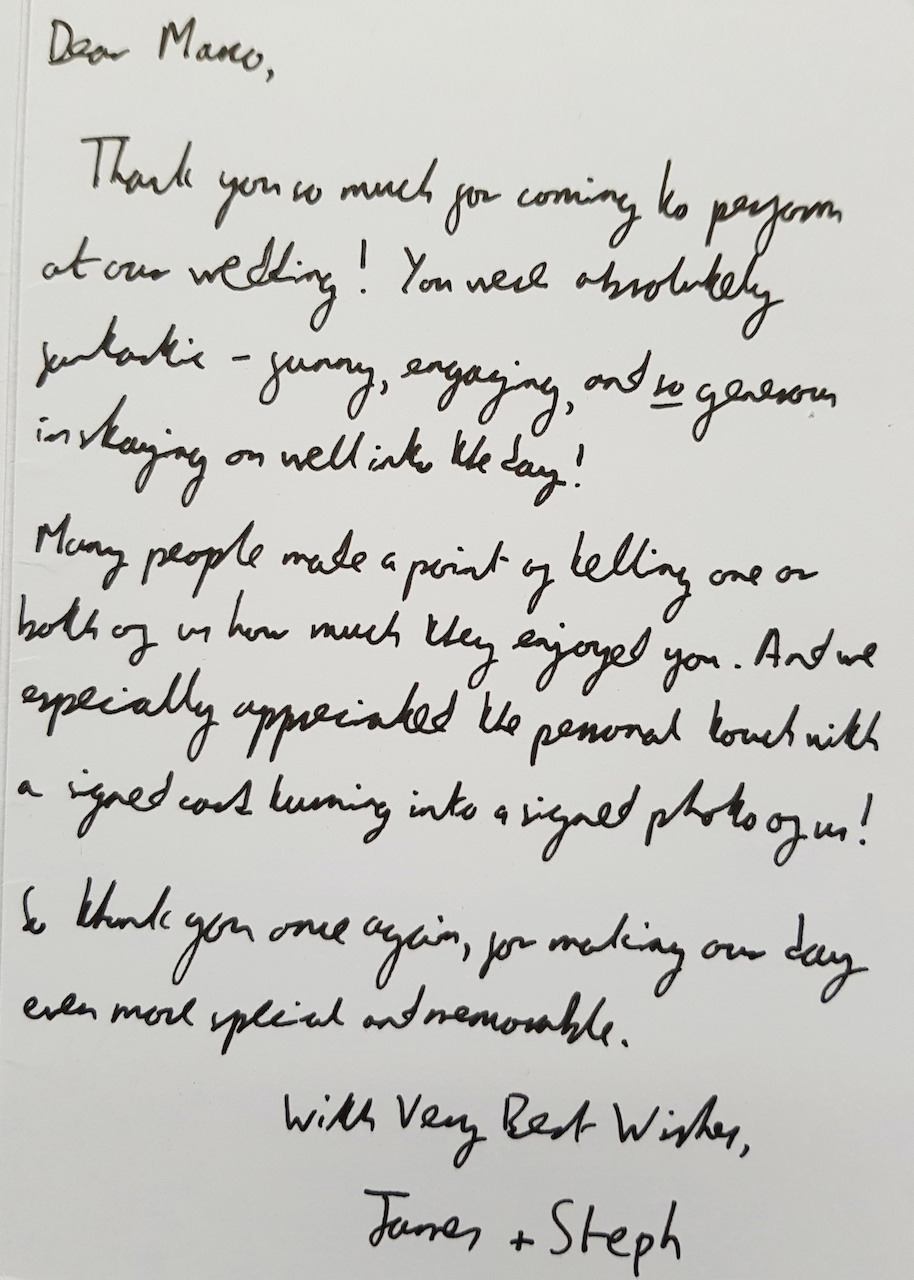 Dear Marco,
Thank you so much for coming to perform
at our wedding! You were absolutely
fantastic - funny, engaging, and so generous
in staying on well into the day!
Many people made a point of telling one or
both of us how much they enjoyed you. And we
especially appreciated the personal touch with
a signed card turning into a signed photo of us!
So thank you once again, for making our day
even more special and memorable.
With Very Best Wishes,
James + Steph